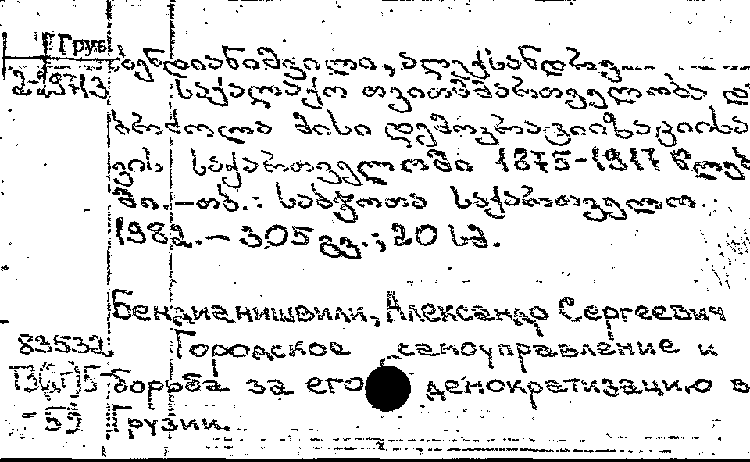 Груз
2-29713
ბენდიანიშვილი, ალექსანდრე
საქალაქო თვითმმართველობა და
ბრძოლა მისი დემოკრატიზაციისა
თვის საქართველოში 1875-1917 წლებ
ში.—თბ.: საბჭოთა საქართველო.
1982.— 305 გვ.; 20 სმ.
Бендианишвили, Александр Сергеевич
83532 Городское самоуправление и
Т3(2Г)5 борьба за его демократизацию в
-59 Грузии.